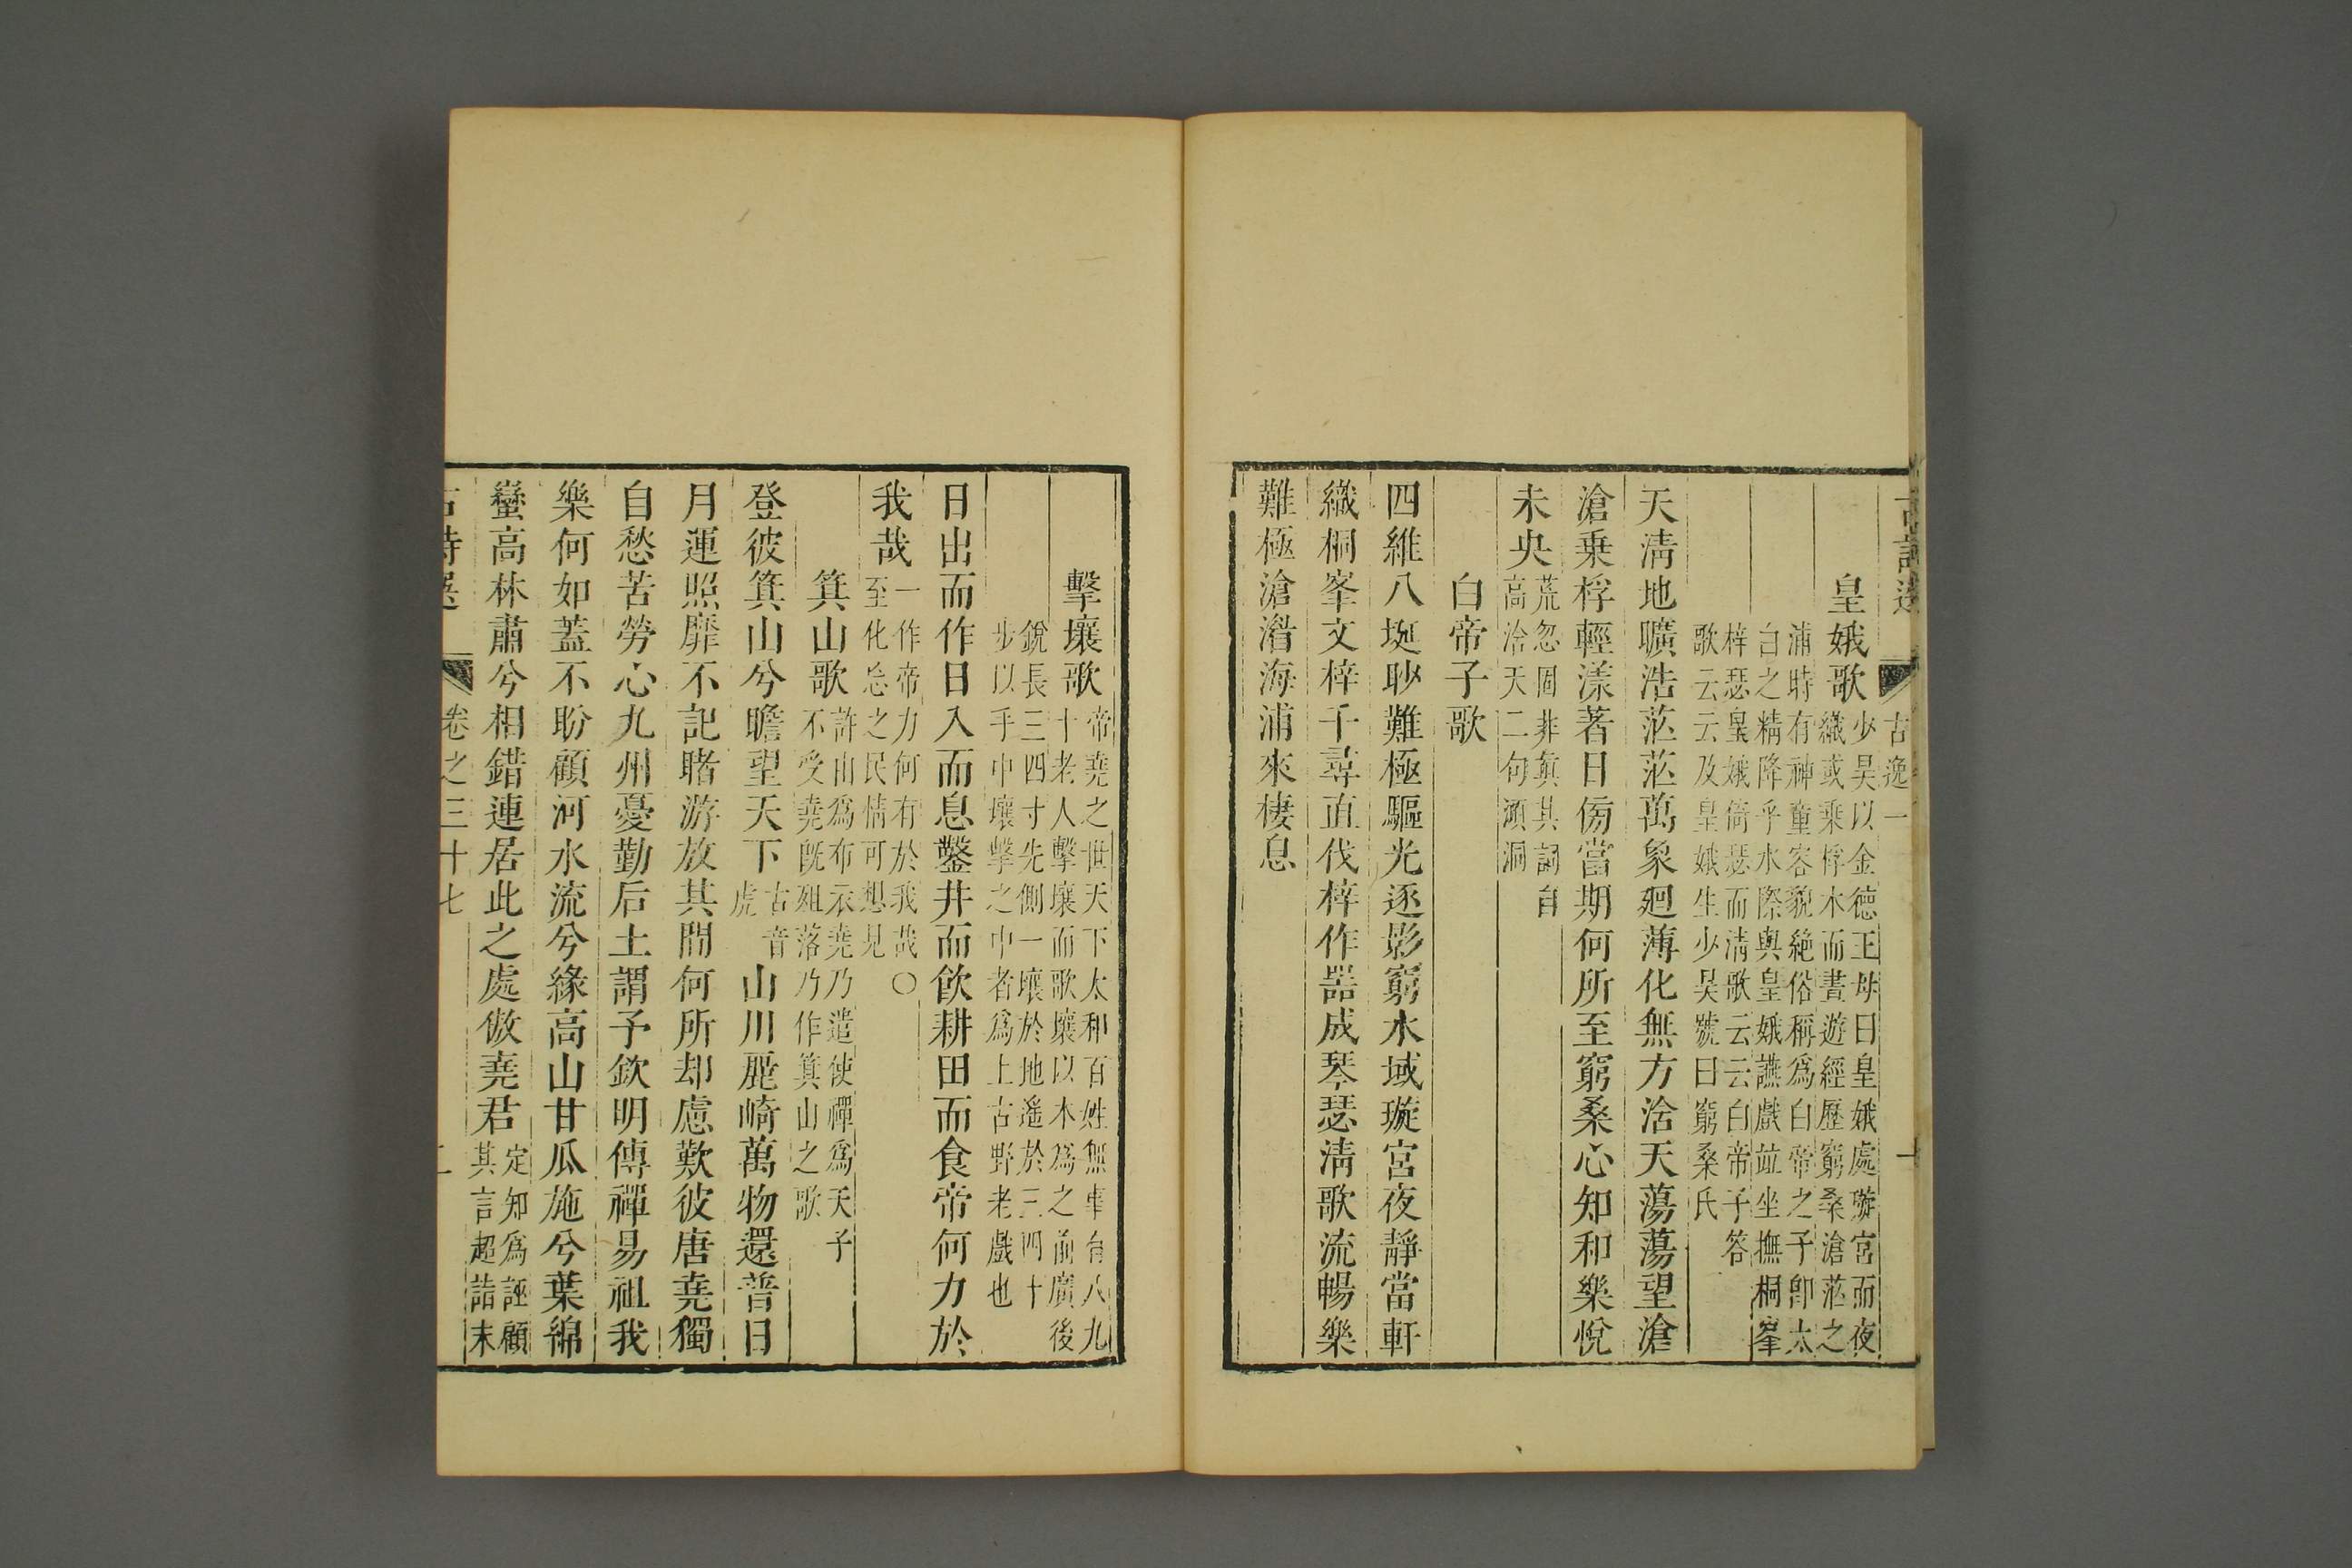 古詩選 古逸一 十
皇娥歌
少昊以金德王母曰皇娥處璇宮而夜
織或乘桴木而晝遊經歷窮桑滄茫之
浦時有神童容貌絶俗稱爲白帝之子卽太
白之精降乎水際與皇娥讌戲竝坐撫桐峯
梓瑟皇娥倚瑟而淸歌云云白帝子答
歌云云及皇娥生少昊號曰窮桑氏
天淸地曠浩茫茫萬象廻薄化無方浛天蕩蕩望滄
滄乗桴輕漾著日傍當期何所至窮桑心知和樂悅
未央
荒忽固非眞其詞自
高浛天二句澒洞
白帝子歌
四維八埏眇難極驅光逐影窮水域璇宮夜靜當軒
織桐峯文梓千尋直伐梓作噐成琴瑟淸歌流暢樂
難極滄湝海浦來棲息
擊壤歌
帝堯之世天下太和百姓無事有八九
十老人擊壤而歌壤以木爲之前廣後
銳長三四寸先側一壤於地遙於三四十
步以手中壤擊之中者爲上古野老戲也
日出而作日入而息鑿井而飮耕田而食帝何力於
我哉
一作帝力何有於我哉○
至化忘之民情可想見
箕山歌
許由爲布衣堯乃遣使禪爲天子
不受堯旣殂落乃作箕山之歌
登彼箕山兮瞻望天下
古音
虎
山川麗崎萬物還普日
月運照靡不記睹游放其間何所却慮歎彼唐堯獨
自愁苦勞心九州憂勤后土謂予欽明傳禪易祖我
樂何如蓋不盼顧河水流兮緣高山甘瓜施兮葉綿
蠻高林肅兮相錯連居此之處傲堯君
定知爲誣顧
其言超詣末
古詩選 卷之三十七 二